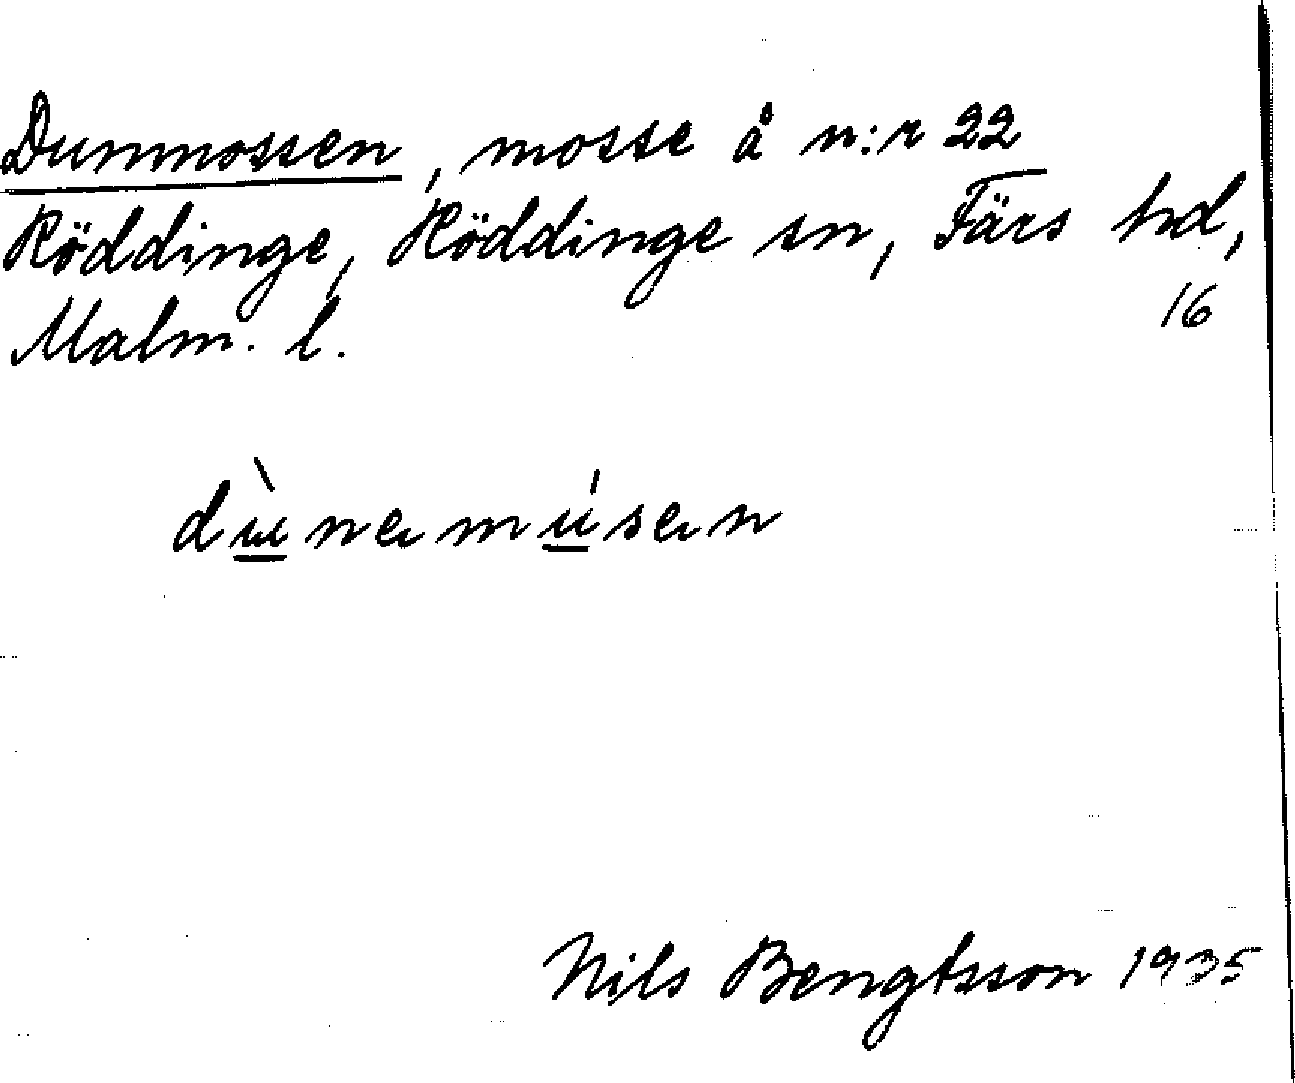 Dunmossen, mosse å n:r 22
Röddinge, Röddinge sn, Färs hd,
Malm. l.
16
dùnemúsen
Nils Bengtsson 1935